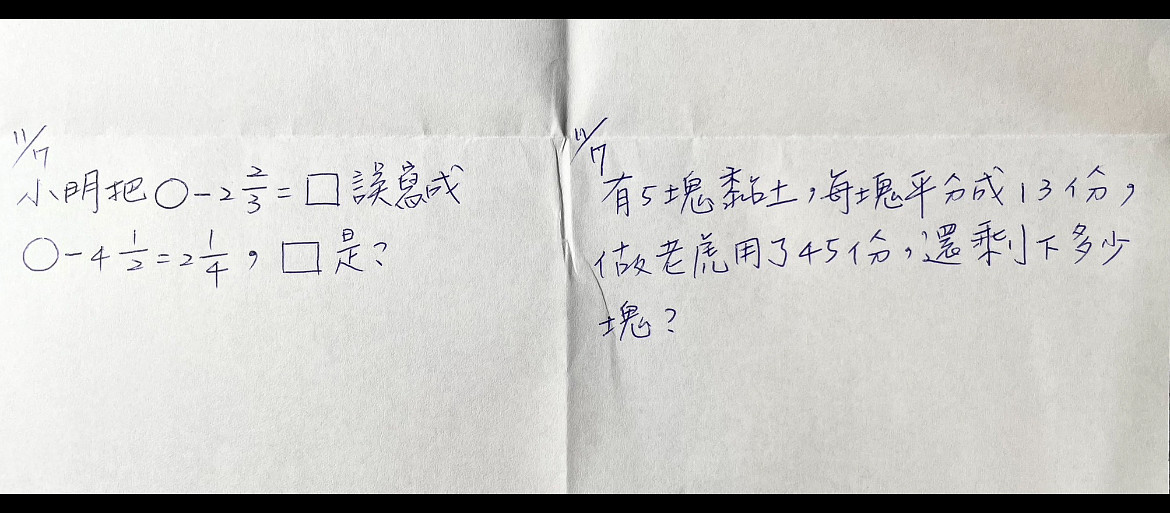 11/7
小明把○-2 2/3=□誤寫成
○-4 1/2=2 1/4，□是？
11/7
有5塊黏土，每塊平分成13份，
做老虎用了45份，還剩下多少
塊？